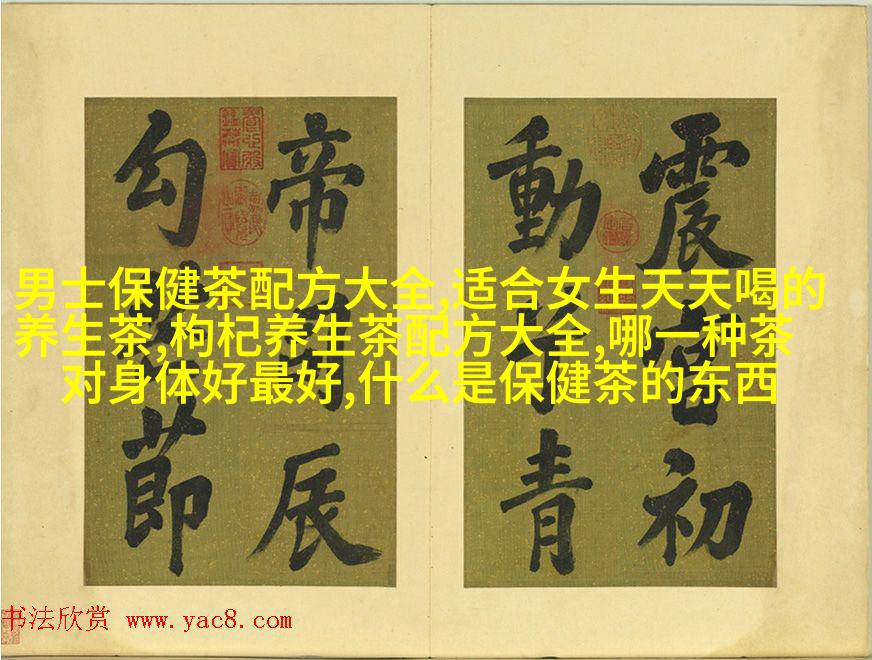 男士保健茶配方大全,适合女生天天喝的
养生茶,枸杞养生茶配方大全,哪一种茶
对身体好最好,什么是保健茶的东西
震宮初
動青
帝辰
勾節
书法欣赏 www.yac8.com